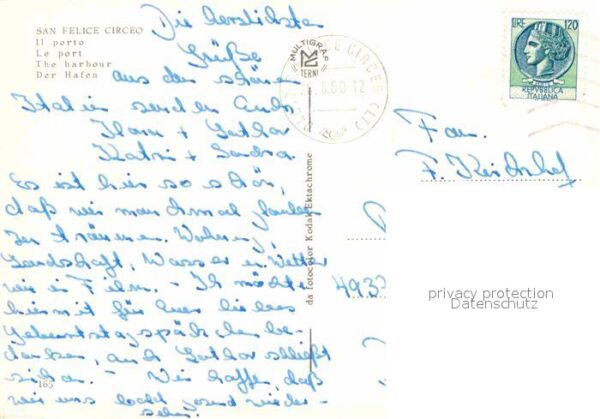 SAN FELICE CIRCEO
Il porto
Le port
The harbour
Der Hafen
Die herzlichsten
Grüße
aus dem schönen
Italien senden Euch
Lothar
Katrin + Sandra.
Es ist hier so schön,
daß wir manchmal glauben
zu träumen. Wohnung,
Landschaft, Wasser u. Wetter
wie im Film. - Ich möchte
hiermit für Euer liebes
Geburtstagspäckchen be-
danken, auch Lothar schließt
sich an. - Wir hoffen, daß
wir uns bald gesund wieder-
sehen.
165
MULTIGRAF
TERNI
CIRCEO
da fotocolor Kodak Ektachrome
LIRE 120
REPUBBLICA
ITALIANA
Fam.
F.
493
privacy protection
Datenschutz